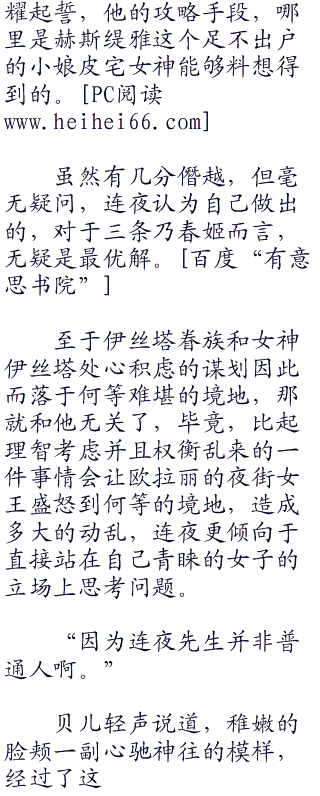 耀起誓，他的攻略手段，哪
里是赫斯缇雅这个足不出户
的小娘皮宅女神能够料想得
到的。[PC阅读
www.heihei66.com]
虽然有几分僭越，但毫
无疑问，连夜认为自己做出
的，对于三条乃春姬而言，
无疑是最优解。[百度“有意
思书院”]
至于伊丝塔眷族和女神
伊丝塔处心积虑的谋划因此
而落于何等难堪的境地，那
就和他无关了，毕竟，比起
理智考虑并且权衡乱来的一
件事情会让欧拉丽的夜街女
王盛怒到何等的境地，造成
多大的动乱，连夜更倾向于
直接站在自己青睐的女子的
立场上思考问题。
“因为连夜先生并非普
通人啊。”
贝儿轻声说道，稚嫩的
脸颊一副心驰神往的模样，
经过了这